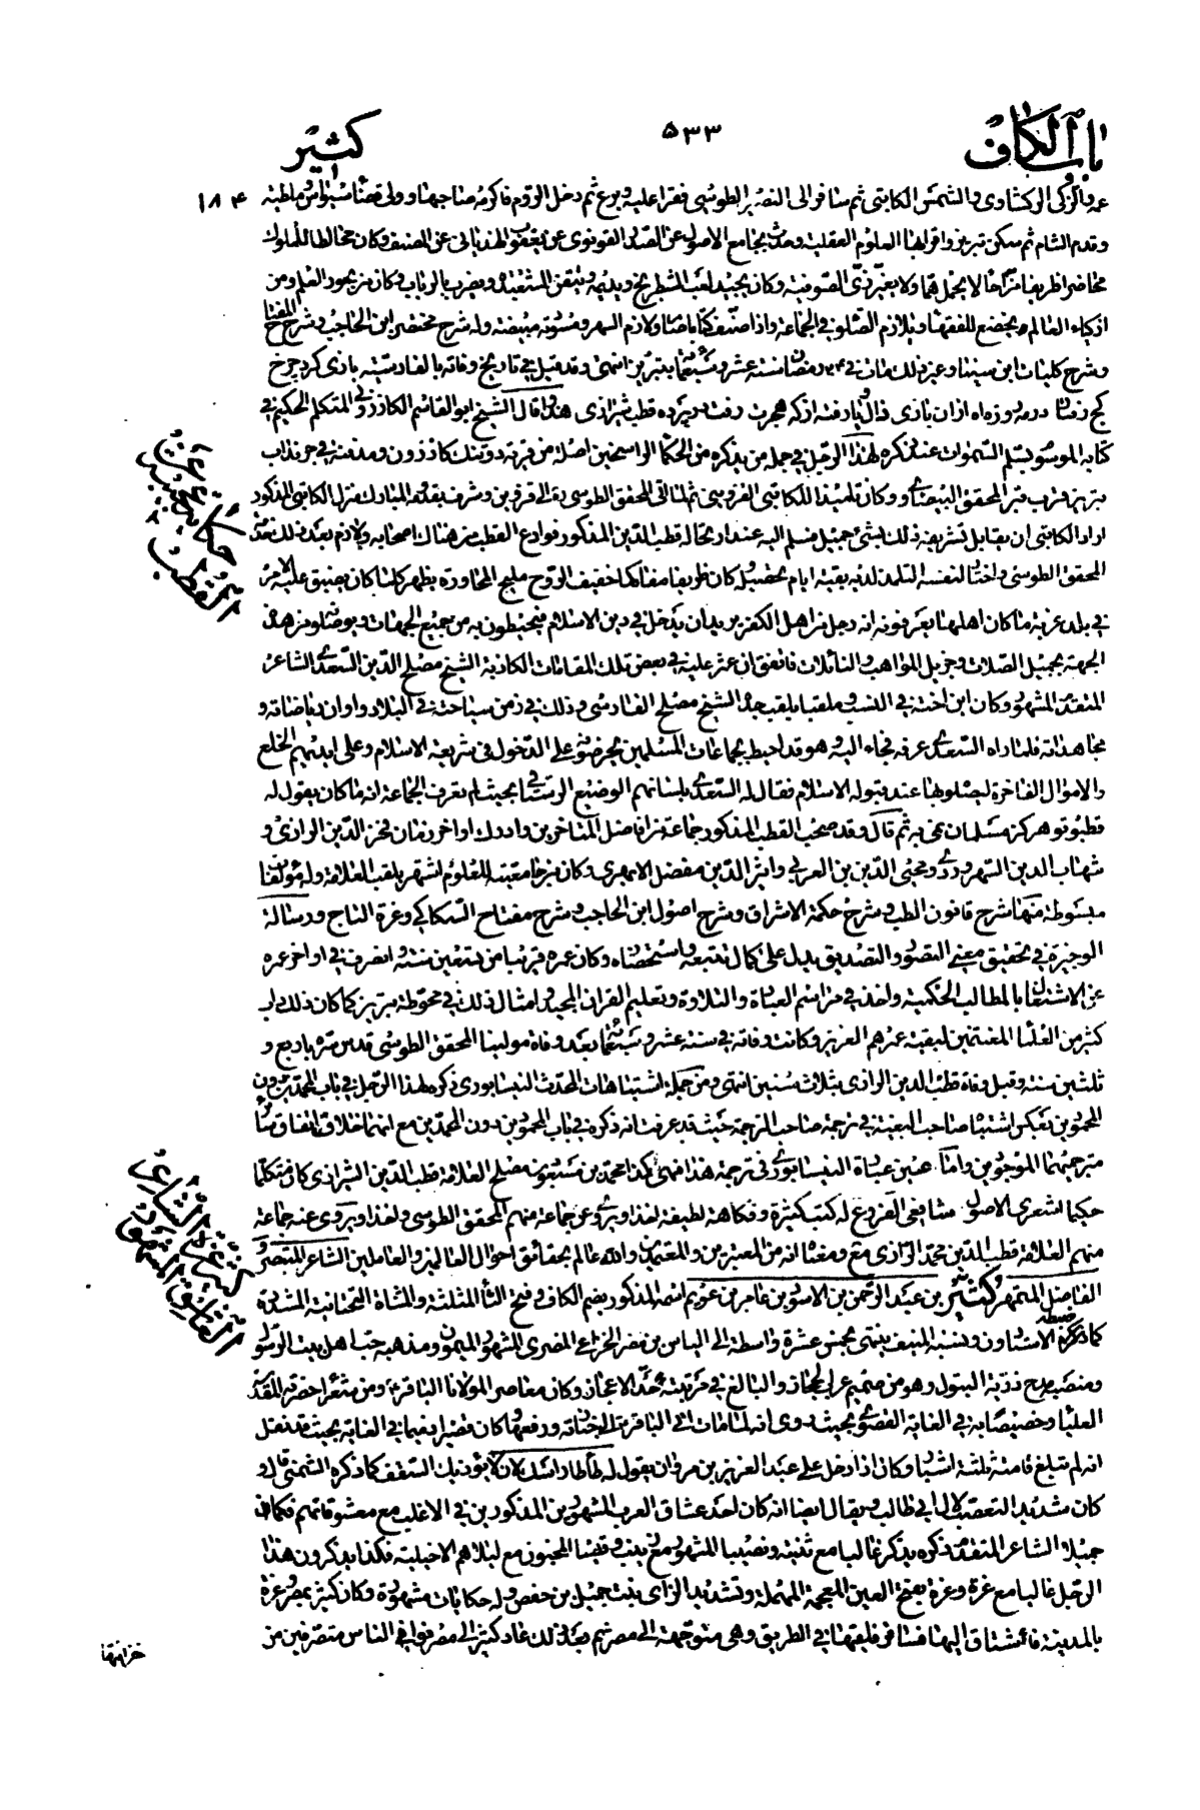 باب الكاف
٥٣٣
كثير
عمه والزكى الركشاوى والشمس الكاتبى ثم سافر الى النصير الطوسى فقرا عليه وبرع ثم دخل الروم فاكرمه صاحبها وولى قضاء سيواس وملطية
١٨٤
وقدم الشام ثم سكن تبريز واقرا بها العلوم العقلية وحدث بجامع الاصول عن الصدر القونوى عن يعقوب الهذبانى عن المصنف وكان مخالطا للملوك
ظريفا مزاحا لا يحمل هما ولا يغير زى الصوفية وكان يجيد لعب الشطرنج ويديمه ويتقن الشعبذة ويضرب بالرباب وكان من بحور العلم ومن
اذكياء العالم يخضع للفقهاء ويلازم الصلوة فى الجماعة واذا صنف كتابا صام ولازم السهر ومسودته مبيضة وله شرح مختصر ابن الحاجب وشرح المفتاح
وشرح كليات ابن سينا وغير ذلك مات فى ٢٤ رمضان سنة عشر وسبعمائة بتبريز انتهى وقد قيل فى تاريخ وفاته بالفارسية بازى كرد چرخ
كج رفتار در مه روزه اه ازان بازى ذال ويا رفته از كه هجرت رفت در پرده قطب شيرازى هذا وقال الشيخ ابو القاسم الكازرونى المتكلم الحكيم فى
كتابه الموسوم بسلم السموات عند ذكره لهذا الرجل فى جملة من يذكره من الحكماء الراسخين اصله من قرية دوتنك كازرون ومدفنه فى جرنداب
تبريز قرب قبر المحقق البيضاوى وكان تلميذا للكاتبى القزوينى ثم لما اتى المحقق الطوسى ره الى قزوين وشرف بقدومه المبارك منزل الكاتبى المذكور
اراد الكاتبى ان يقابل تشريفه ذلك بشئ جميل فسلم اليه عند ارتحاله قطب الدين المذكور فوادع القطب من هناك اصحابه ولازم بعد ذلك خدمة
المحقق الطوسى واختار لنفسه التلمذ لديه بقية ايام تحصيله كان ظريفا مفاكها خفيف الروح مليح المحاورة يظهر كلما كان يضيق عليه الامر
فى بلد غربة ما كان اهلها يعرفونه انه رجل من اهل الكفر يريد ان يدخل فى دين الاسلام فيحيطون به من جميع الجهات ويوصلونه من هذه
الجهة بجميل الصلات وجزيل المواهب والنائلات فاتفق ان عثر عليه فى بعض تلك المقامات الكاذبة الشيخ مصلح الدين السعدى الشاعر
المتقدم المشهور وكان ابن اخته فى النسب وملقبا بلقب جده الشيخ مصلح الفارسى وذلك فى زمن سياحته فى البلاد واوان رياضاته و
مجاهداته فلما راه السعدى عرفه فجاء اليه وهو قد احيط بجماعات المسلمين يحرضونه على الدخول فى شريعة الاسلام وعلى ايديهم الخلع
والاموال الفاخرة ليصلوه بها عند قبوله الاسلام فقال له السعدى بلسانهم الوضيع الرستاقى بحيث لم يعرف الجماعة انه ما كان يقول له
قطبو تو هركز مسلمان نمى به ثم قال وقد صحب القطب المذكور جماعة من افاضل المتاخرين وادرك اواخر زمان فخر الدين الرازى و
شهاب الدين السهروردى ومحيى الدين بن العربى واثير الدين مفضل الابهرى وكان من جامعيته للعلوم اشتهر بلقب العلامة وله مؤلفات
مبسوطة منها شرح قانون الطب وشرح حكمة الاشراق وشرح اصول ابن الحاجب وشرح مفتاح السكاكى وغرة التاج ورسالة
الوجيزة فى تحقيق معنى التصور والتصديق يدل على كمال تتبعه واستحضاره وكان عمره قريبا من تسعين سنة وانصرف فى اواخر عمره
عن الاشتغال بالمطالب الحكمية واخذ فى مراسم العبادة والتلاوة وتعليم القران المجيد وامثال ذلك فى محوطة تبريز كما كان ذلك داب
كثير من العلماء المغتنمين لبقية عمرهم العزيز وكانت وفاته فى سنة عشر وسبعمائة بعد وفاة مولينا المحقق الطوسى قدس سره باربع و
ثلثين سنة وقبل وفاة قطب الدين الرازى بثلاث سنين انتهى ومن جملة اشتباهات المحدث النيسابورى ذكره لهذا الرجل فى باب المحمدين دون
المحمودين بعكس اشتباه صاحب البغية فى ترجمة صاحب الترجمة حيث قد عرفت انه ذكره فى باب المحمودين دون المحمدين مع انهما خلاف اتفاق سائر
مترجميهما الموجودين واما عين عبارة النيسابورى فى ترجمة هذا فهى هكذا محمد بن مسعود بن مصلح العلامة قطب الدين الشيرازى كان متكلما
حكيما اشعرى الاصول شافعى الفروع له كتب كثيرة وفكاهة لطيفة اخذ ويروى عن جماعة منهم المحقق الطوسى واخذ ويروى عنه جماعة
منهم العلامة قطب الدين محمد الرازى مع ومعناه انه من المعتبرين والمعتمدين والله عالم بحقائق احوال العالمين والعاملين الشاعر المتبصر و
الفاضل المتمهر كثير بن عبد الرحمن بن الاسود بن عامر بن عويمر اسمه المذكور بضم الكاف وفتح الثاء المثلثة والمثناة التحتانية المشددة
كما ذكره ضبطه الاستادون ونسبه المنيف ينتهى بخمس عشرة واسطة الى الياس بن مضر الخزاعى المضرى المشهور الميمون ومذهبه حب اهل بيت الرسول
ومنصبه مدح ذرية البتول وهو من صميم عرب الحجاز والبالغ فى عربيته حد الاعجاز وكان معاصر المولانا الباقر ع ومن شعراء حضرته المقدسة
العليا وخصيصا به فى الغاية القصوى بحيث روى انه لما مات اتى الباقر ع الى جنازته ورفعها وكان قصيرا دميما فى الغاية بحيث قد نقل
انه لم تبلغ قامته ثلثة اشبار وكان اذا دخل على عبد العزيز بن مروان يقول له طأطأ راسك لان لا يؤذيك السقف كما ذكره الشمنى قال و
كان شديد التعصب لال ابى طالب ويقال ايضا انه كان احد عشاق العرب المشهورين المذكورين فى الاغلب مع معشوقاتهم فكما ان
جميلا الشاعر المتقدم ذكره يذكر غالبا مع بثينة ونصيبا المشهور مع زينب وقيسا المجنون مع ليلاهم الاخيلية فكذا يذكرون هذا
الرجل غالبا مع عزة وعزة بفتح العين المعجمة المهملة وتشديد الزاى بنت جميل بن حفص وله حكايات مشهورة وكان كثير بمصر وعزة
بالمدينة فاشتاق اليها فسافر فلقيها فى الطريق وهى متوجهة الى مصر ثم بعد ذلك عاد كثير الى مصر فوافى الناس منصرفين من
جنازتها
حكاية عن غريبة القطب
كثير عزة الشاعر العاشق المشهور